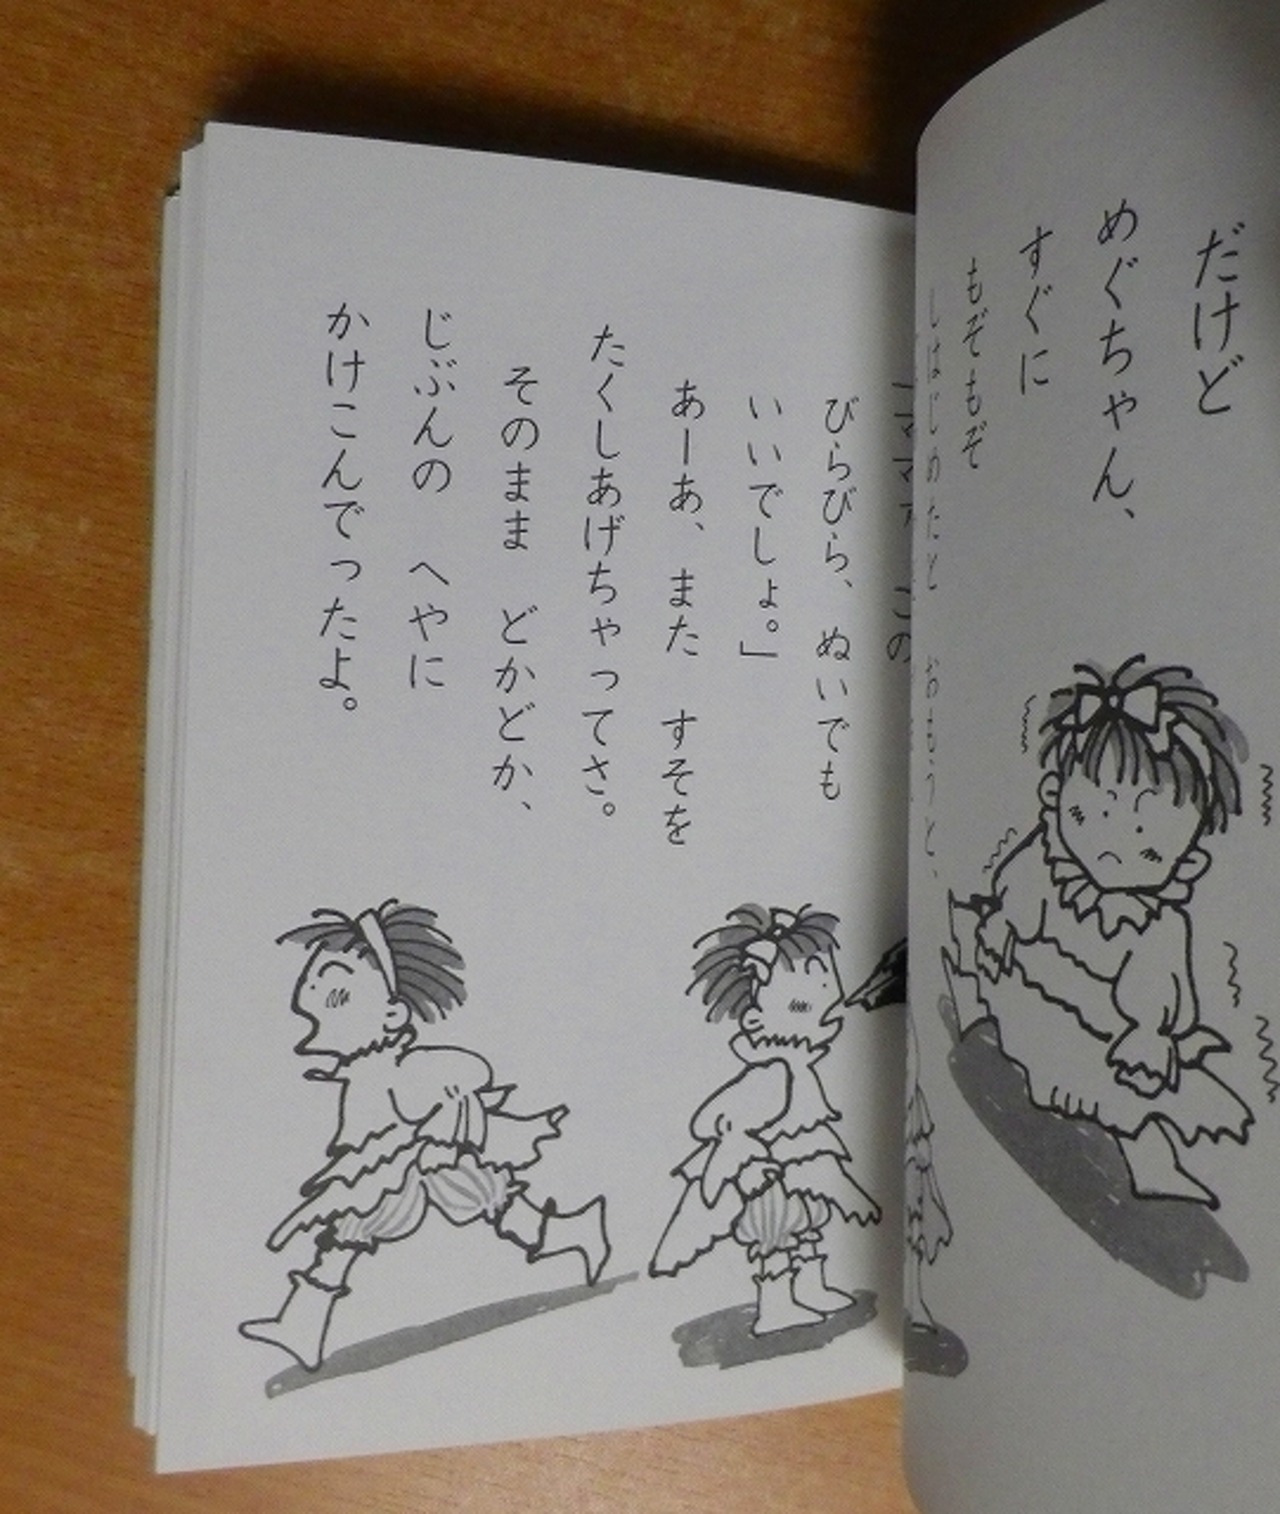 だけど
めぐちゃん、
すぐに
もぞもぞ
しはじめたと おもうと、
この
びらびら、ぬいでも
いいでしょ。」
あーあ、また すそを
たくしあげちゃってさ。
そのまま どかどか、
じぶんの へやに
かけこんでったよ。